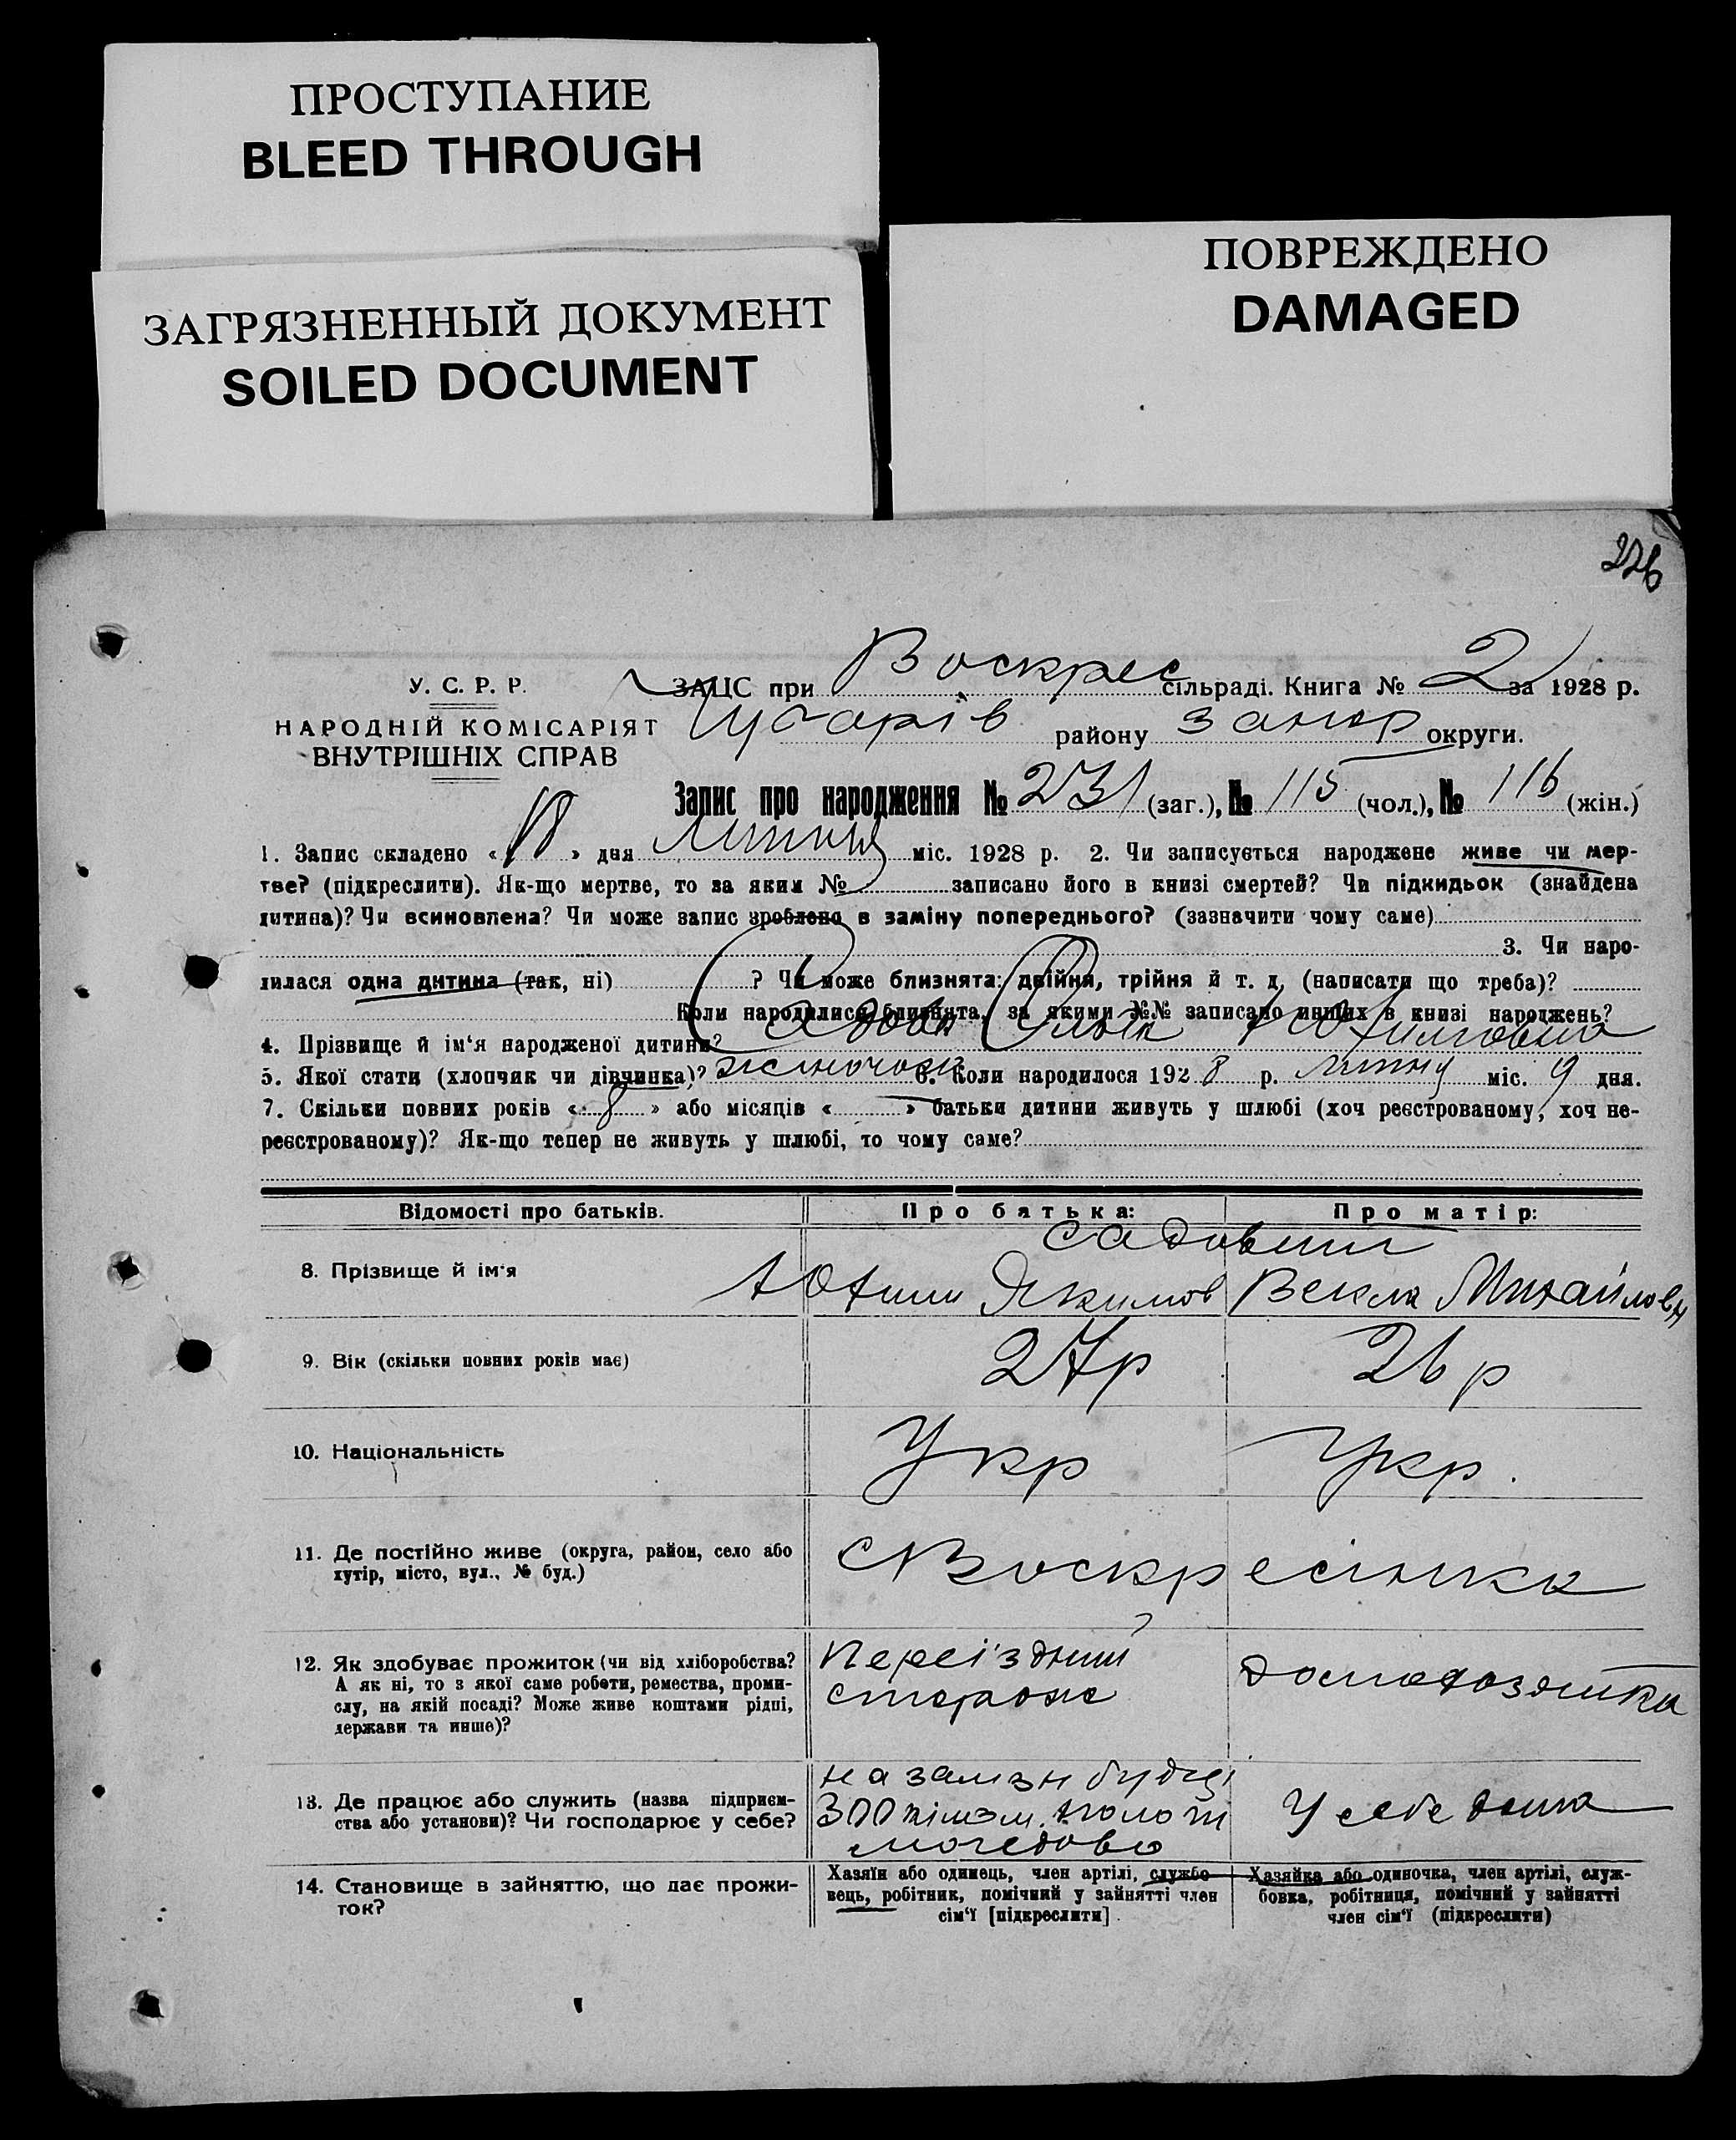 ПРОСТУПАНИЕ
BLEED THROUGH
ЗАГРЯЗНЕННЫЙ ДОКУМЕНТ
SOILED DOCUMENT
ПОВРЕЖДЕНО
DAMAGED
226
У. С. Р. Р.
НАРОДНІЙ КОМІСАРІЯТ
ВНУТРІШНІХ СПРАВ
ЗАЦС при Воскрес сільраді. Книга № 2 за 1928 р.
району Запор округи.
Запис про народження № 231 (заг.), № 115 (чол.), № 116 (жін.)
1. Запис складено « 18 » дня Липня міс. 1928 р. 2. Чи записується народжене живе чи мер-
тве? (підкреслити). Як-що мертве, то за яким № записано його в книзі смертей? Чи підкидьок (знайдена
дитина)? Чи всиновлена? Чи може запис зроблено в заміну попереднього? (зазначити чому саме)
3. Чи наро-
дилася одна дитина (так, ні) ? Чи може близнята: двійня, трійня й т. д. (написати що треба)?
Коли народилися близнята, за якими №№ записано инших в книзі народжень?
4. Прізвище й ім‘я народженої дитини?
5. Якої стати (хлопчик чи дівчинка)? жіночої 6. Коли народилося 1928 р. липня міс. 9 дня.
7. Скільки повних років « 8 » або місяців « » батьки дитини живуть у шлюбі (хоч реєстрованому, хоч не-
реєстрованому)? Як-що тепер не живуть у шлюбі, то чому саме?
Відомості про батьків. Про батька: Про матір:
8. Прізвище й ім‘я
Якимов Векла Михайловн
9. Вік (скільки повних років має) 27р 26 р
10. Національність Укр Укр.
11. Де постійно живе (округа, район, село або
хутір, місто, вул., № буд.)
с Воскресінка
12. Як здобуває прожиток (чи від хліборобства?
А як ні, то з якої саме роботи, ремества, проми-
слу, на якій посаді? Може живе коштами рідні,
держави та инше)?
Переїздний
сторож
домохозяйка
13. Де працює або служить (назва підприєм-
ства або установи)? Чи господарює у себе?
на залізн будці
300
У себе дома
14. Становище в зайняттю, що дає прожи-
ток?
Хазяїн або одинець, член артілі, службо-
вець, робітник, помічний у зайнятті член
сім‘ї [підкреслити].
Хазяйка або одиночка, член артілі, служ-
бовка, робітниця, помічний у зайнятті
член сім‘ї (підкреслити)